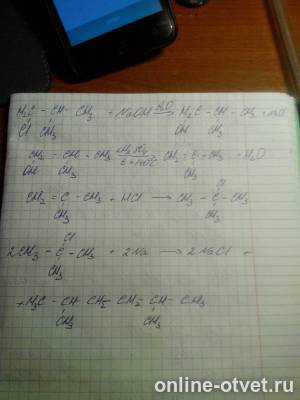 H₂C - CH - CH₃ + NaOH H₂O→ H₂C - CH - CH₃ + NaCl
Cl CH₃ OH CH₃
CH₂ - CH - CH₃ H₂SO₄ CH₂ = C - CH₃ + H₂O
OH CH₃ CH₃
CH₂ = C - CH₃ + HCl → CH₃ - C - CH₃
Cl
CH₃ CH₃
Cl
2CH₃ - C - CH₃ + 2Na → 2NaCl +
CH₃
+ H₃C - CH - CH₂ - CH₂ - CH - CH₃
CH₃ CH₃
online-otvet.ru